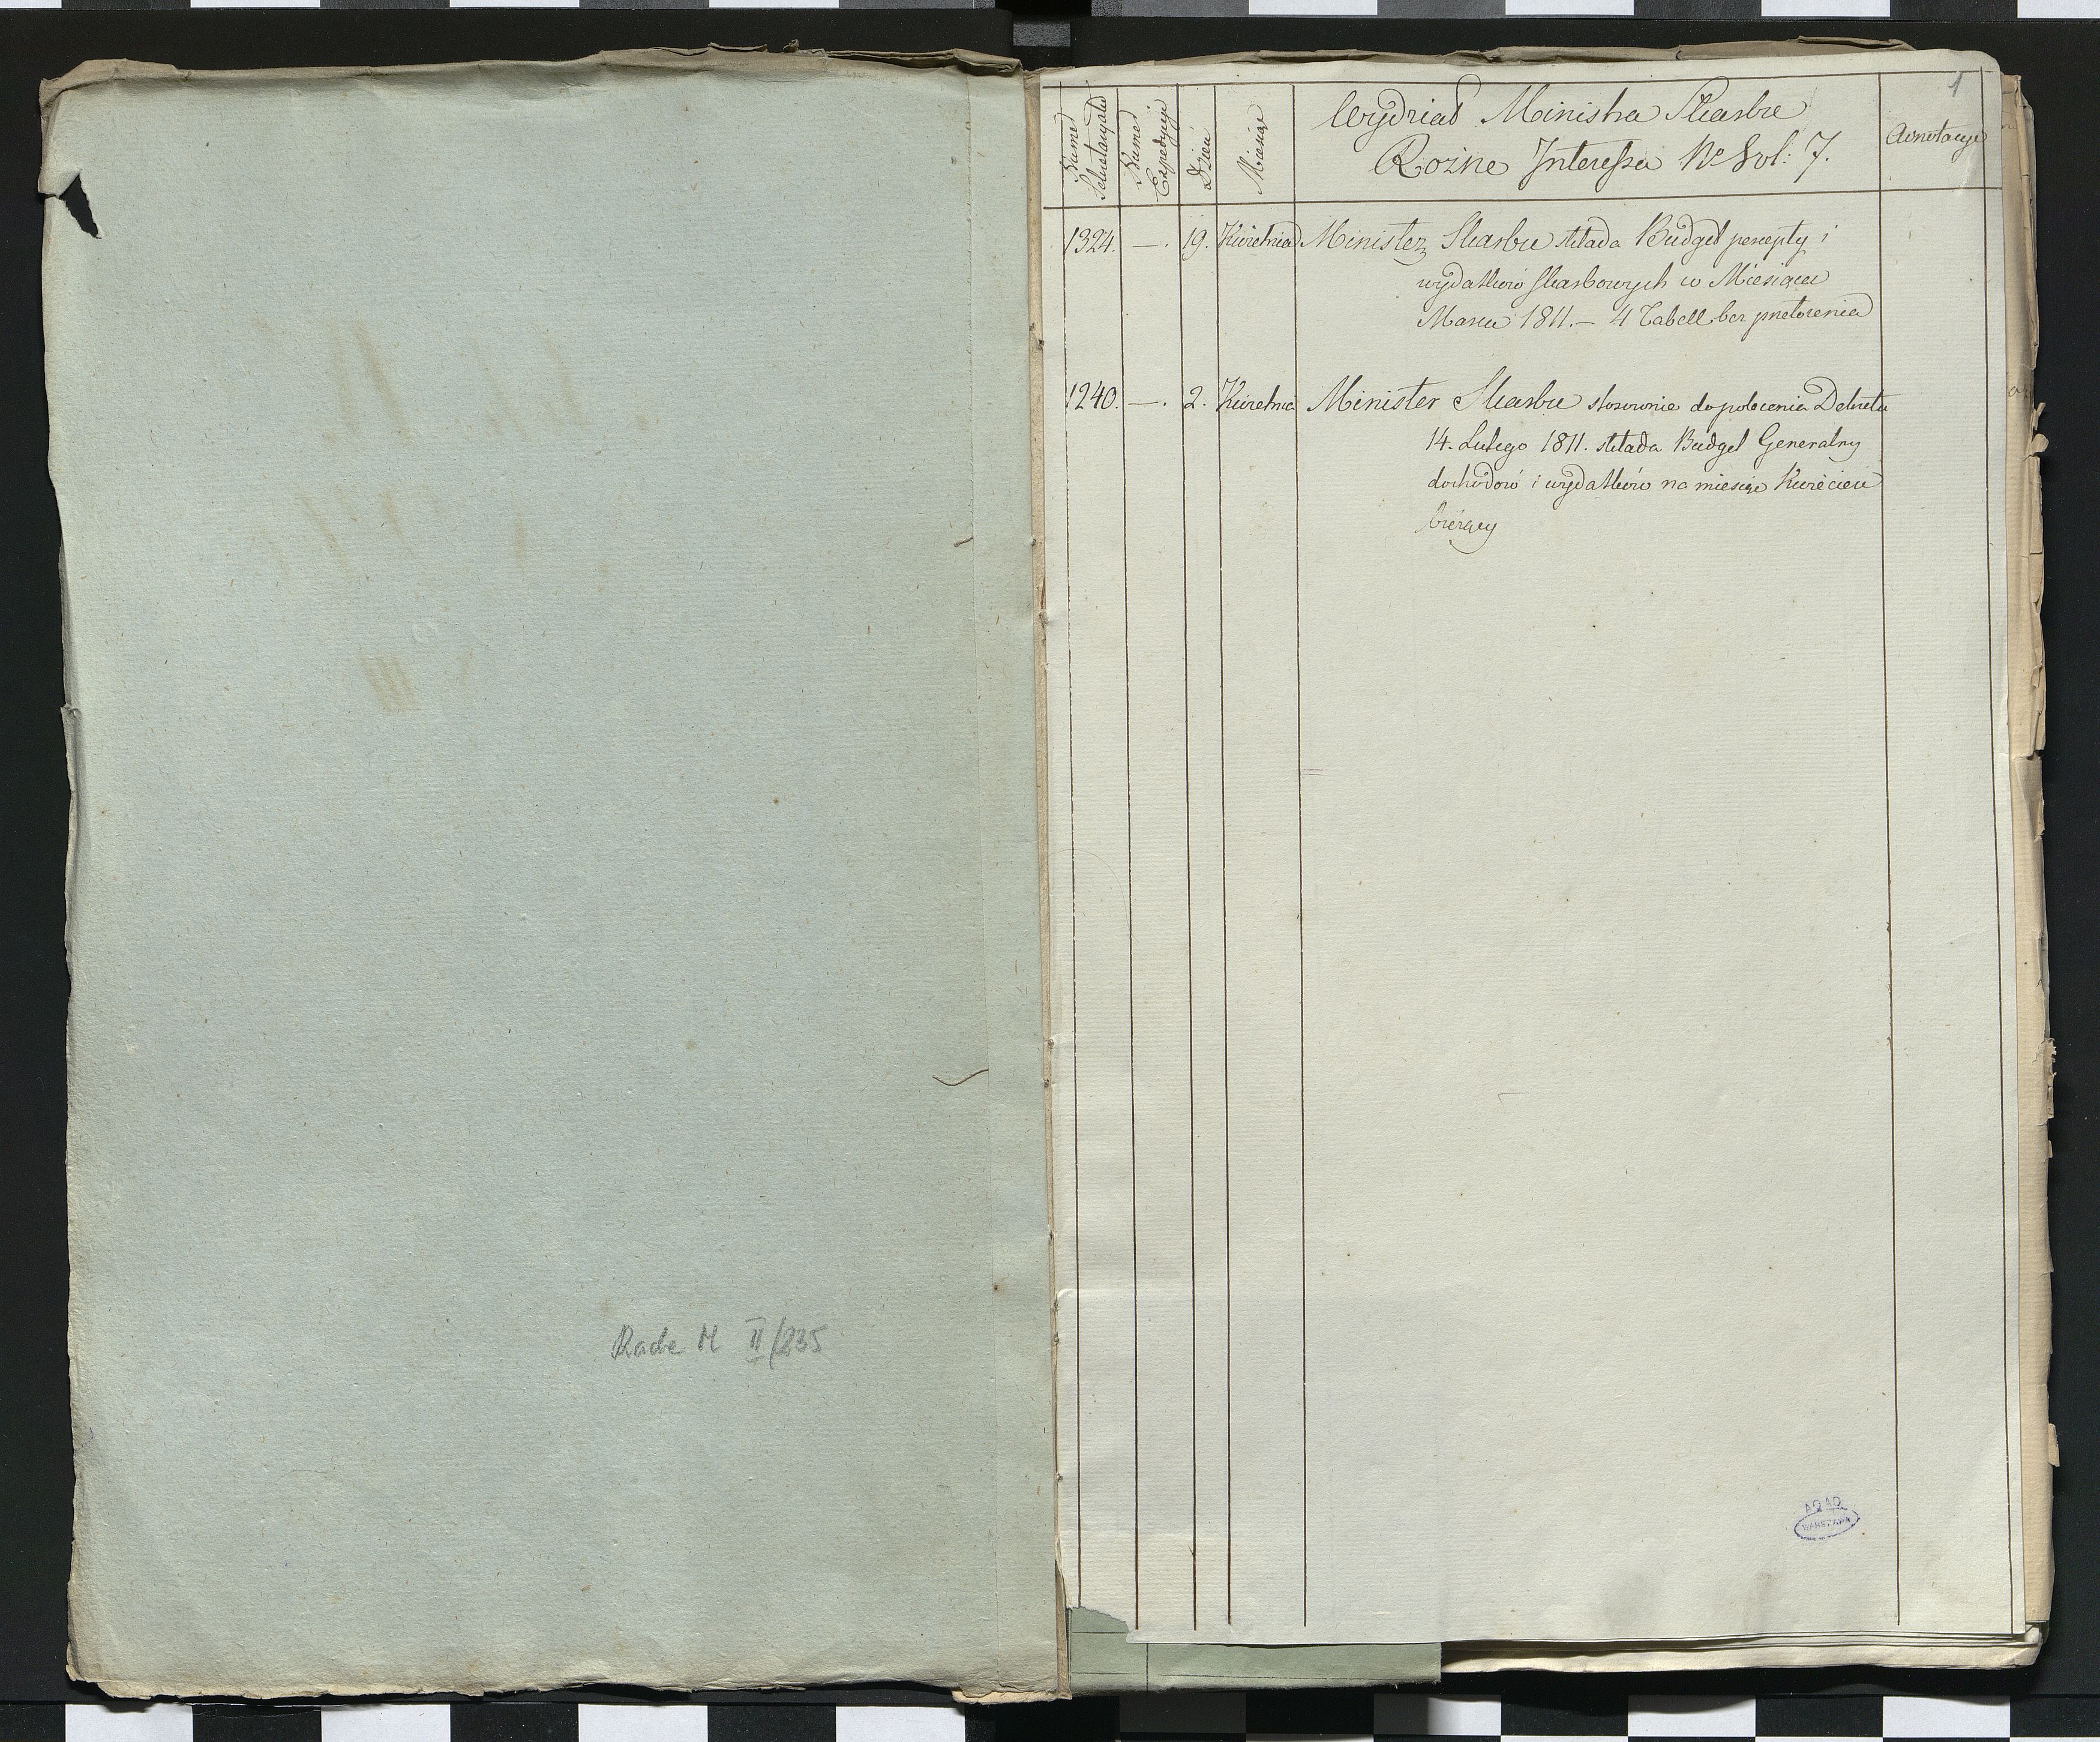 Rada M II/235
1
Numer Sekretaryatu
Numer Expedycyi
Dzień
Miesiąc
Wydział Ministra Skarbu
Rożne Interessa No Vol: 7.
Adnotacye
1324. —. 19. Kwietnia Minister Skarbu składa Budget percepty i
wydatków skarbowych w Miesiącu
Marcu 1811. — 4 Tabell bez przełożenia
1240. —. 2. Kwietnia Minister Skarbu stosownie do polecenia Dekretu
14. Lutego 1811. składa Budget Generalny
dochodów i wydatków na miesiąc Kwiecień
bieżący
AGAD
WARSZAWA